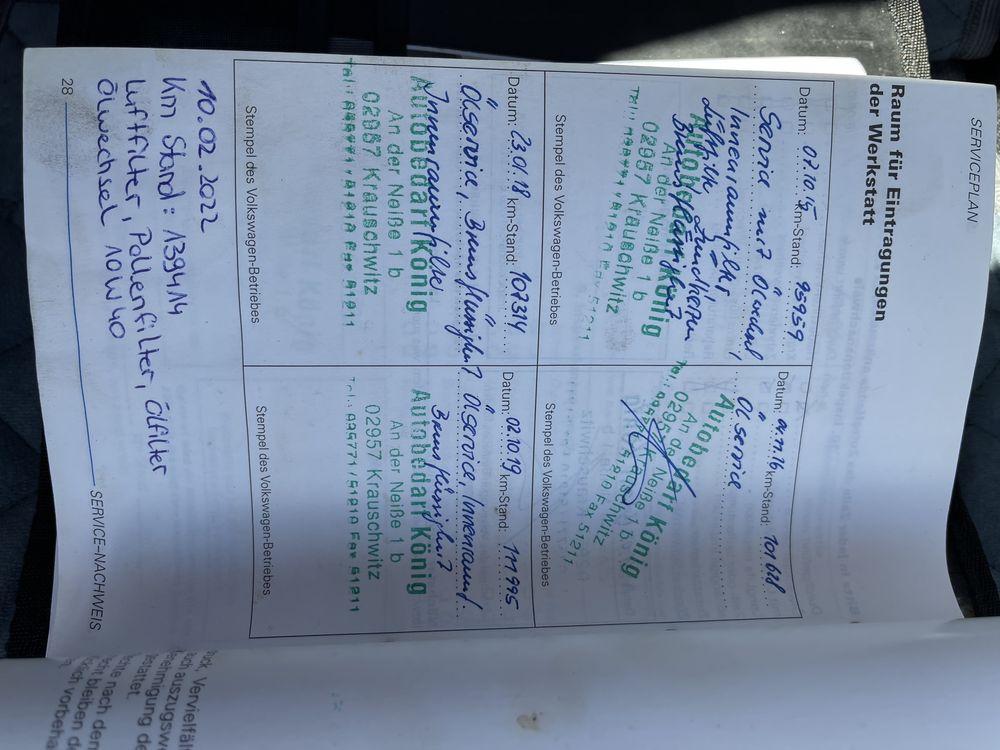 SERVICEPLAN
Raum für Eintragungen
der Werkstatt
Datum: 07.10.15 km-Stand: 95959
Service mit Ölwechsel,
Innenraumfilter,
Luftfilter, Zündkerzen
Bremsflüssigkeit
Autobedarf König
An der Neiße 1 b
02957 Krauschwitz
Stempel des Volkswagen-Betriebes
Datum: 01.11.16 km-Stand: 101628
Ölservice
Autobedarf König
An der Neiße 1 b
02957 Krauschwitz
Stempel des Volkswagen-Betriebes
Datum: 23.01.18 km-Stand: 107314
Ölservice, Bremsflüssigkeit
Innenraumfilter
Autobedarf König
An der Neiße 1 b
02957 Krauschwitz
Stempel des Volkswagen-Betriebes
Datum: 02.10.19 km-Stand: 111995
Ölservice, Innenraumf.
Bremsflüssigkeit
Autobedarf König
An der Neiße 1 b
02957 Krauschwitz
Tel.: 035771/51210 Fax 51211
Stempel des Volkswagen-Betriebes
10.02.2022
Km Stand: 139414
Luftfilter, Pollenfilter, Ölfilter
Ölwechsel 10W40
28
SERVICE-NACHWEIS